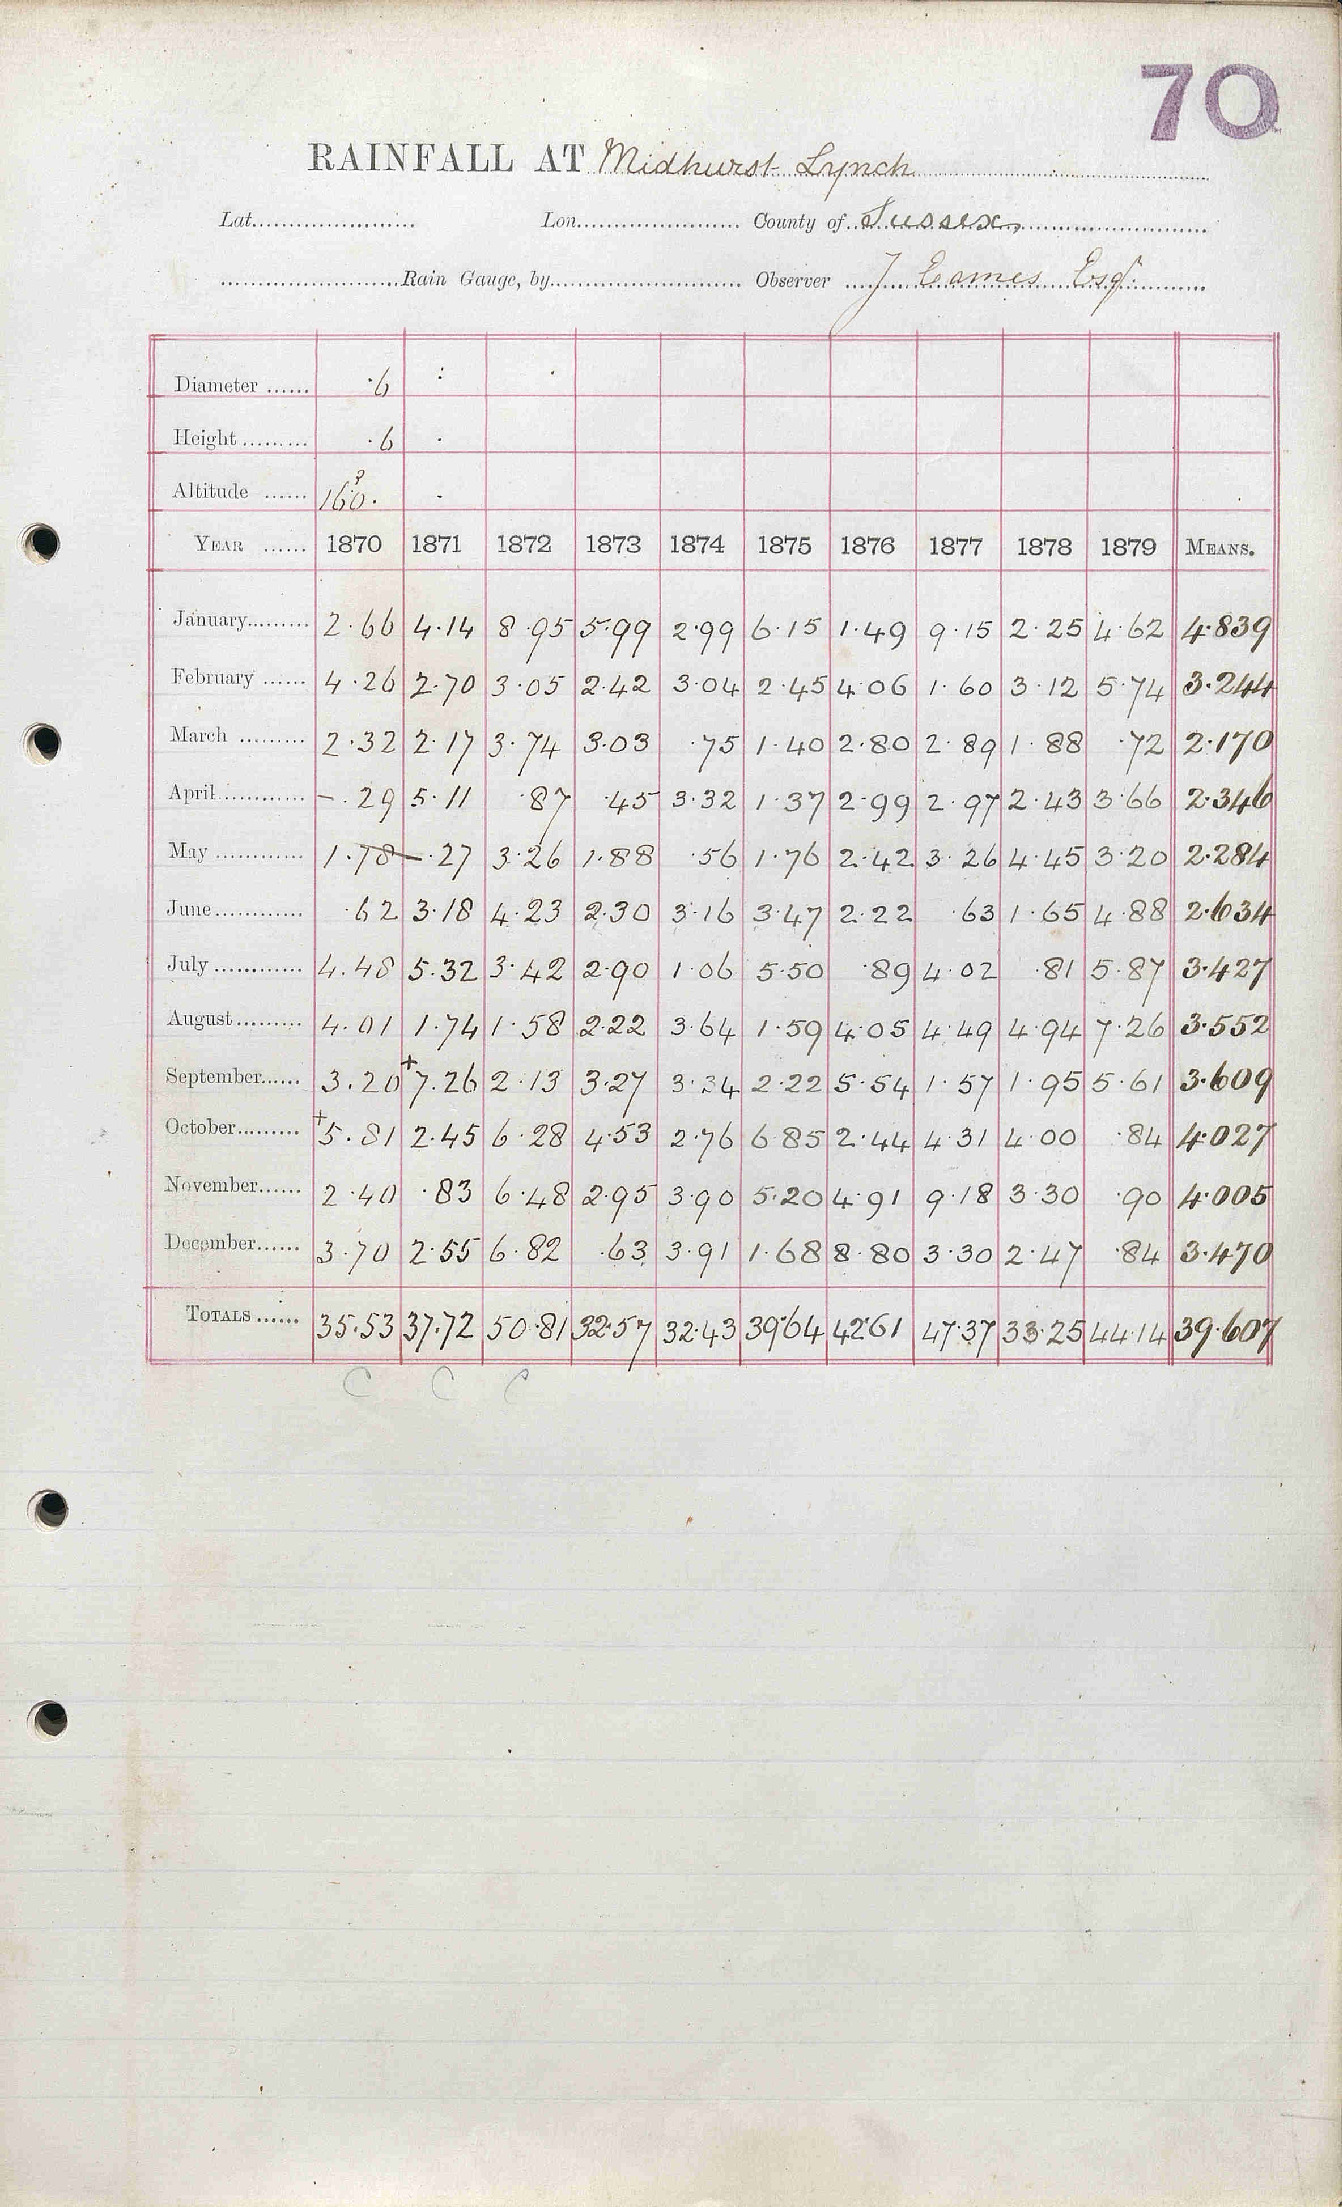 70
RAINFALL AT Midhurst Lynch
Lat. Lon. County of Sussex
Rain Gauge, by Observer J Eames Esqr
Diameter ...... ·6 :
Height ......... ·6 ·
Altitude ...... 160· ? -
YEAR ...... 1870 1871 1872 1873 1874 1875 1876 1877 1878 1879 MEANS.
January......... 2·66 4·14 8·95 5·99 2·99 6·15 1·49 9·15 2·25 4·62 4·839
February ...... 4·26 2·70 3·05 2·42 3·04 2·45 4·06 1·60 3·12 5·74 3·244
March ......... 2·32 2·17 3·74 3·03 ·75 1·40 2·80 2·89 1·88 ·72 2·170
April............ -·29 5·11 ·87 ·45 3·32 1·37 2·99 2·97 2·43 3·66 2·346
May ............ 1·78 -·27 3·26 1·88 ·56 1·76 2·42 3·26 4·45 3·20 2·284
June............ ·62 3·18 4·23 2·30 3·16 3·47 2·22 ·63 1·65 4·88 2·634
July ............ 4·48 5·32 3·42 2·90 1·06 5·50 ·89 4·02 ·81 5·87 3·427
August......... 4·01 1·74 1·58 2·22 3·64 1·59 4·05 4·49 4·94 7·26 3·552
September...... 3·20 +7·26 2·13 3·27 3·34 2·22 5·54 1·57 1·95 5·61 3·609
October......... +5·81 2·45 6·28 4·53 2·76 6·85 2·44 4·31 4·00 ·84 4·027
November...... 2·40 ·83 6·48 2·95 3·90 5·20 4·91 9·18 3·30 ·90 4·005
December...... 3·70 2·55 6·82 ·63 3·91 1·68 8·80 3·30 2·47 ·84 3·470
TOTALS ...... 35·53 37·72 50·81 32·57 32·43 39·64 42·61 47·37 33·25 44·14 39·607
C C C